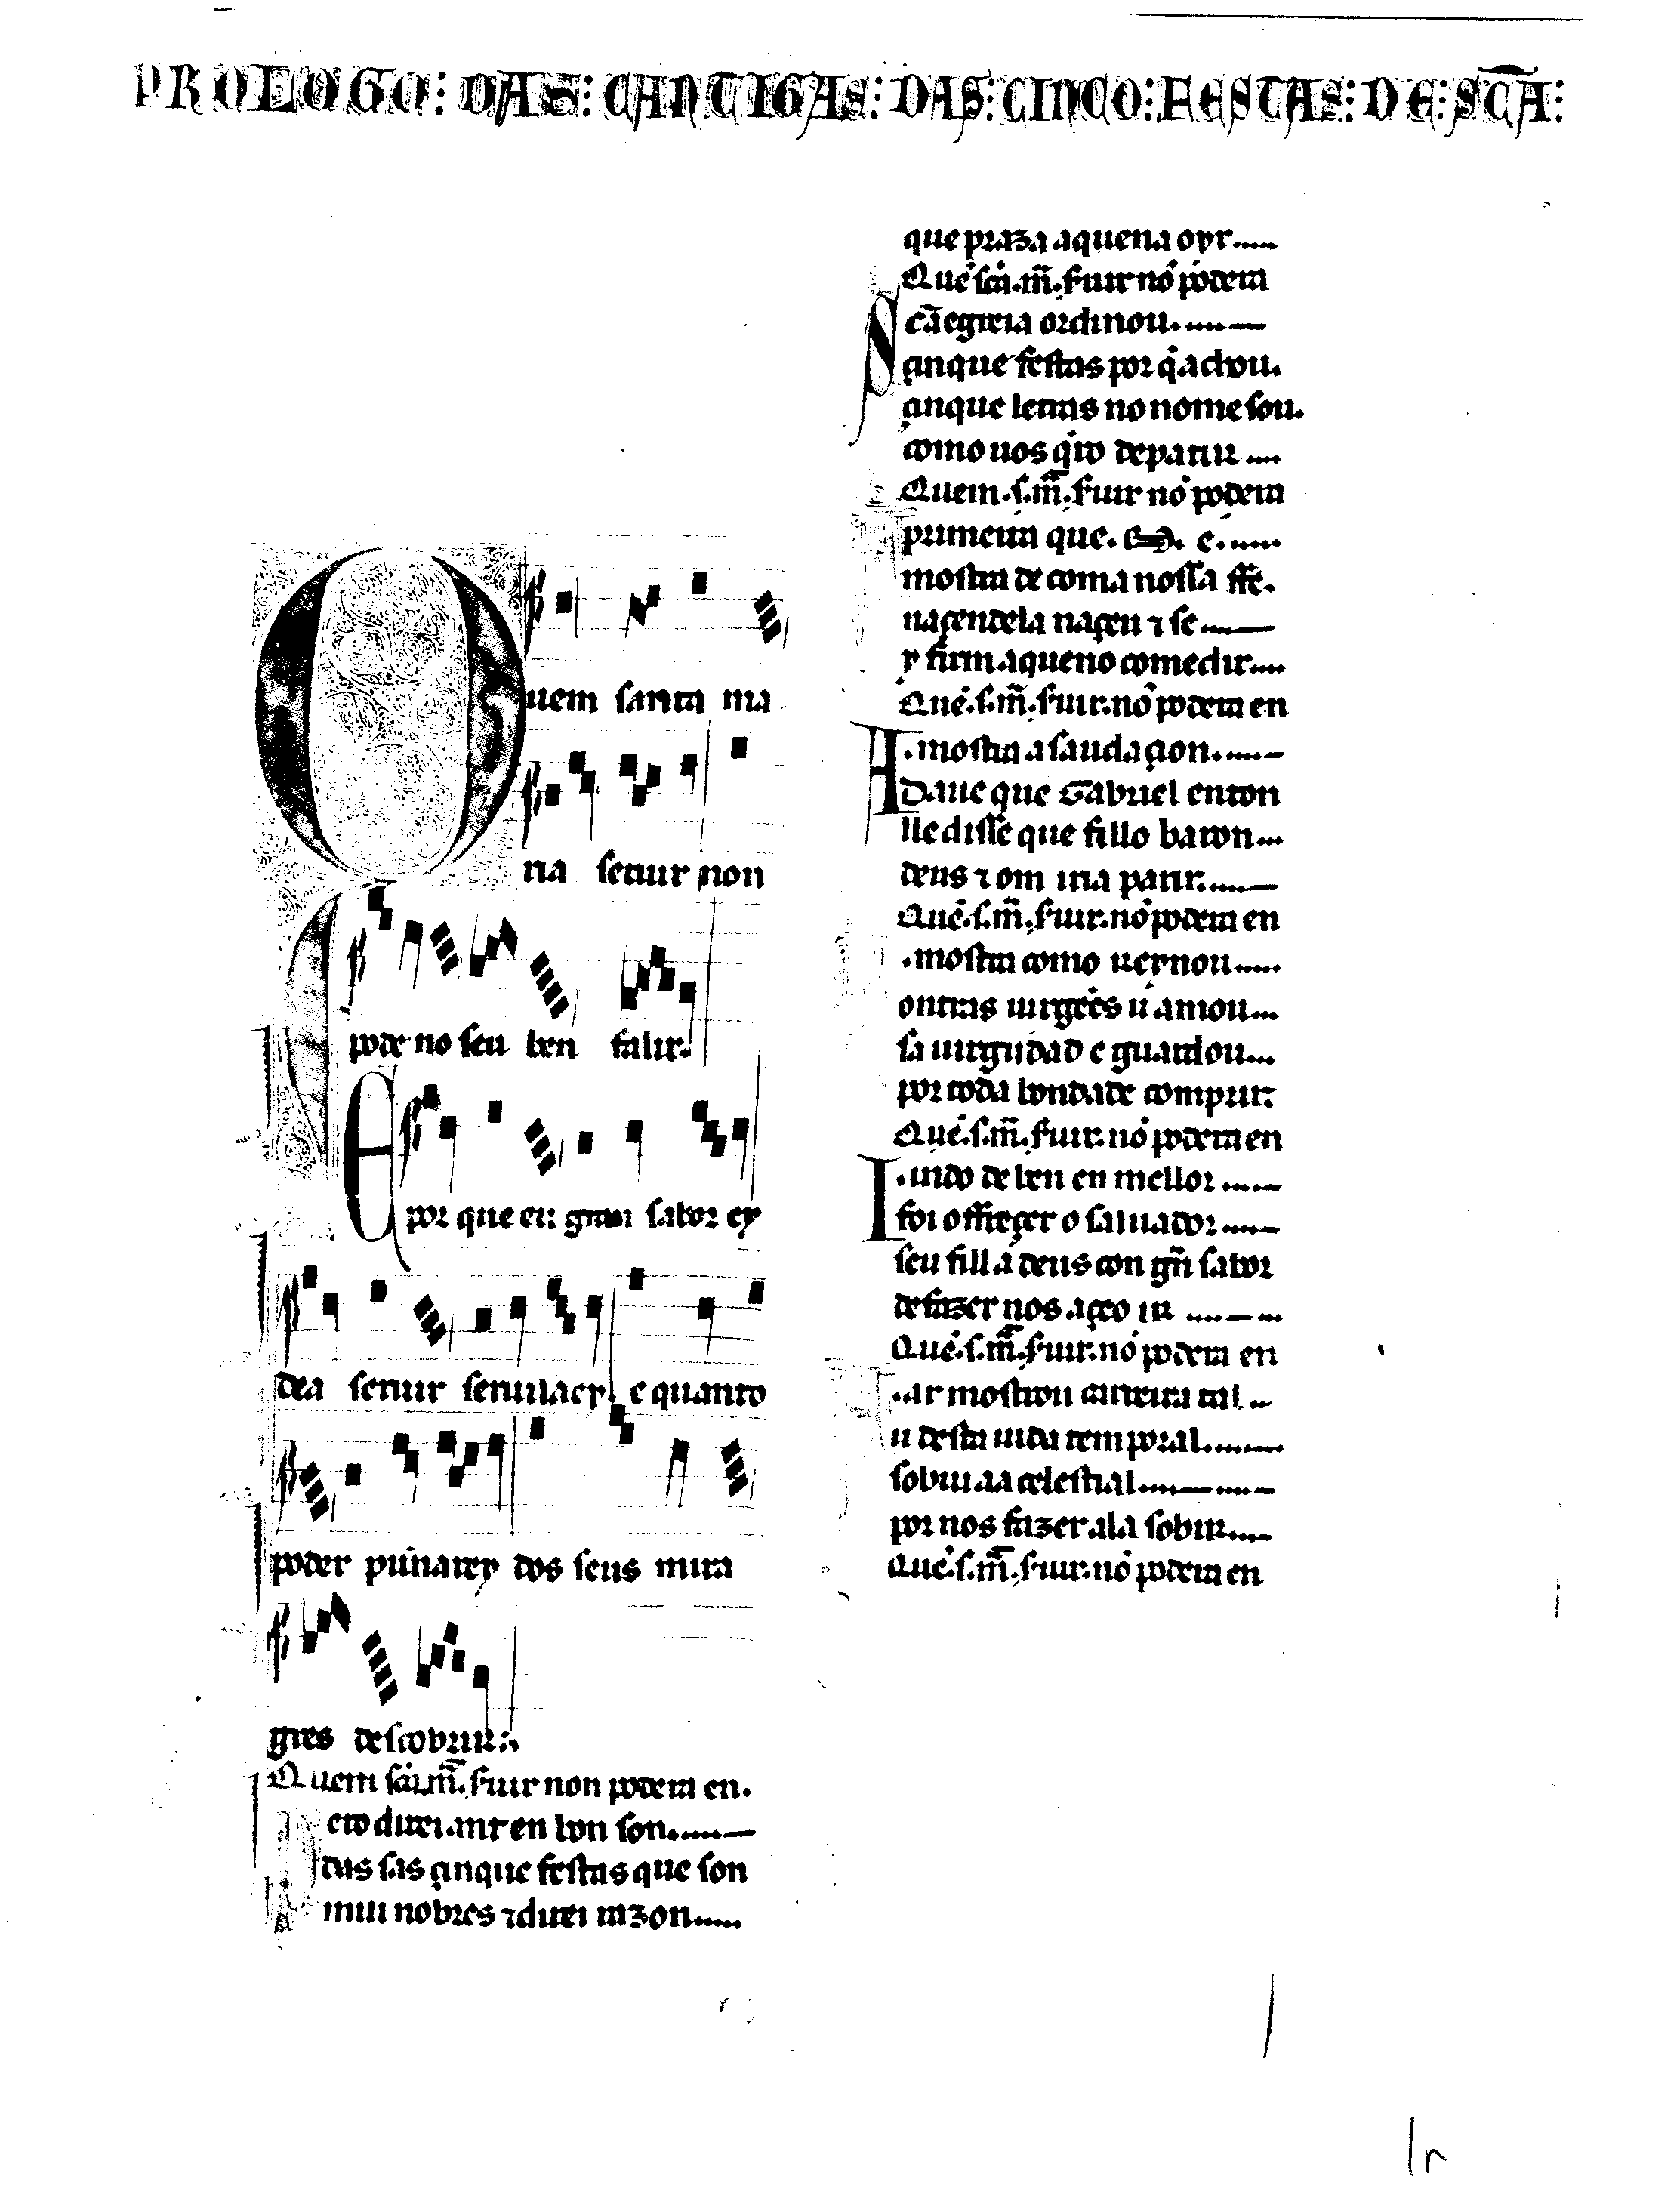 PROLOGO: DAS: CANTIGAS: DAS: CINCO: FESTAS: DE: SC̄A:
Quem santa ma
ria seruir non
pode no seu ben falir.
E por que en gran sabor ey
dea seruir seruilaey. e quanto
poder punarey dos seus mira
gres descobrir:
Quem scȧ.m̃. s̓uir non poderá en.
ero direi.mr̃ en bon son.....—
das sas çinque festas que son
mui nobres ⁊ direi razon.....
que praza aquena oyr.....
Quẽ scȧ.m̃. s̓uir nõ poderá
cã egreia ordinou.....—
çinque festas por q̇ achou.
çinque letras no nome sou.
como uos q̇ro departir ....
Quem.s.m̃. s̓uir nõ poderá
primeira que. e.....
mostra de coma nossa ffe.
naçendela naçeu ⁊ se ....—
y firm aqueno comedir....
Quẽ.s.m̃. s̓uir. nõ poderá en
A.mostra a saudaçon.....—
Daue que Gabriel enton
lle disse que fillo baron...
deus ⁊ om iria parir.....—
Quẽ.s.m̃. s̓uir. nõ poderá en
.mostra como reynou.....
ontras uirgẽes u amou...
sa uirgĩidad e guardou...
por toda bondade comprir:
Quẽ.s.m̃. s̓uir. nõ poderá en
I.indo de ben en mellor .....—
foi offreçer o saluador .....—
seu fill a deus con grñ sabor
de fazer nos açeo ir ....—...
Quẽ.s.m̃. s̓uir. nõ poderá en
.ar mostrou carreira tal ..
u desta uida temporal......—
sobiu aa celestial.....—....—
por nos fazer alá sobir....
Quẽ.s.m̃. s̓uir. nõ poderá en
1r